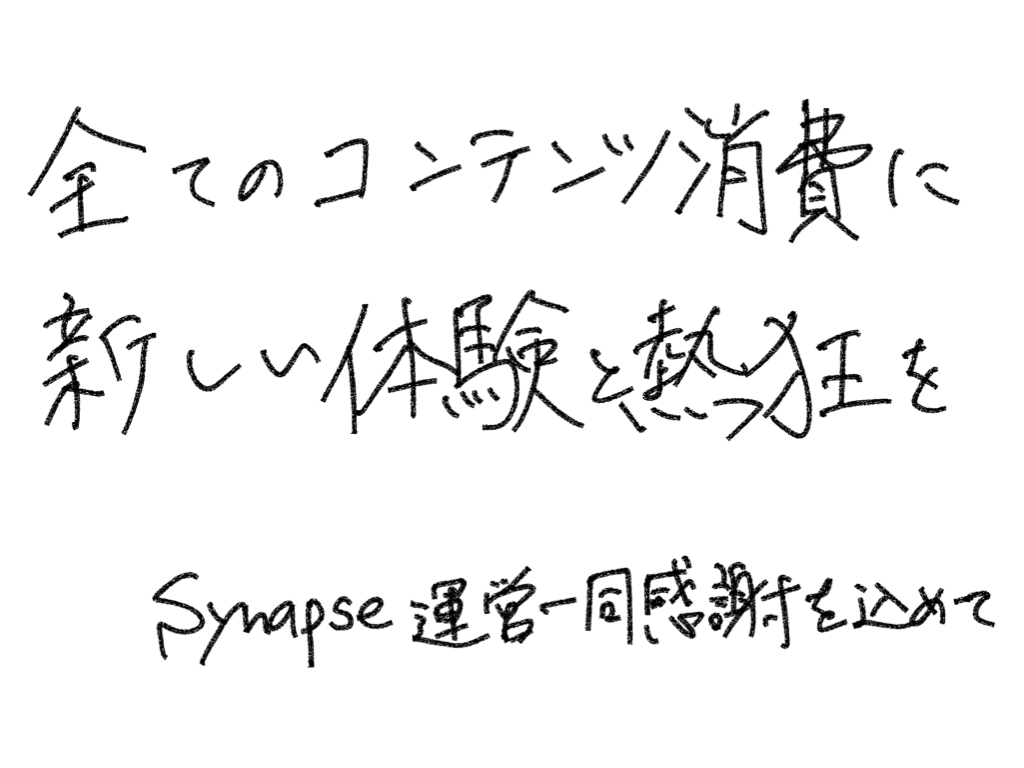 全てのコンテンツ消費に
新しい体験と熱狂を
Synapse 運営一同感謝を込めて